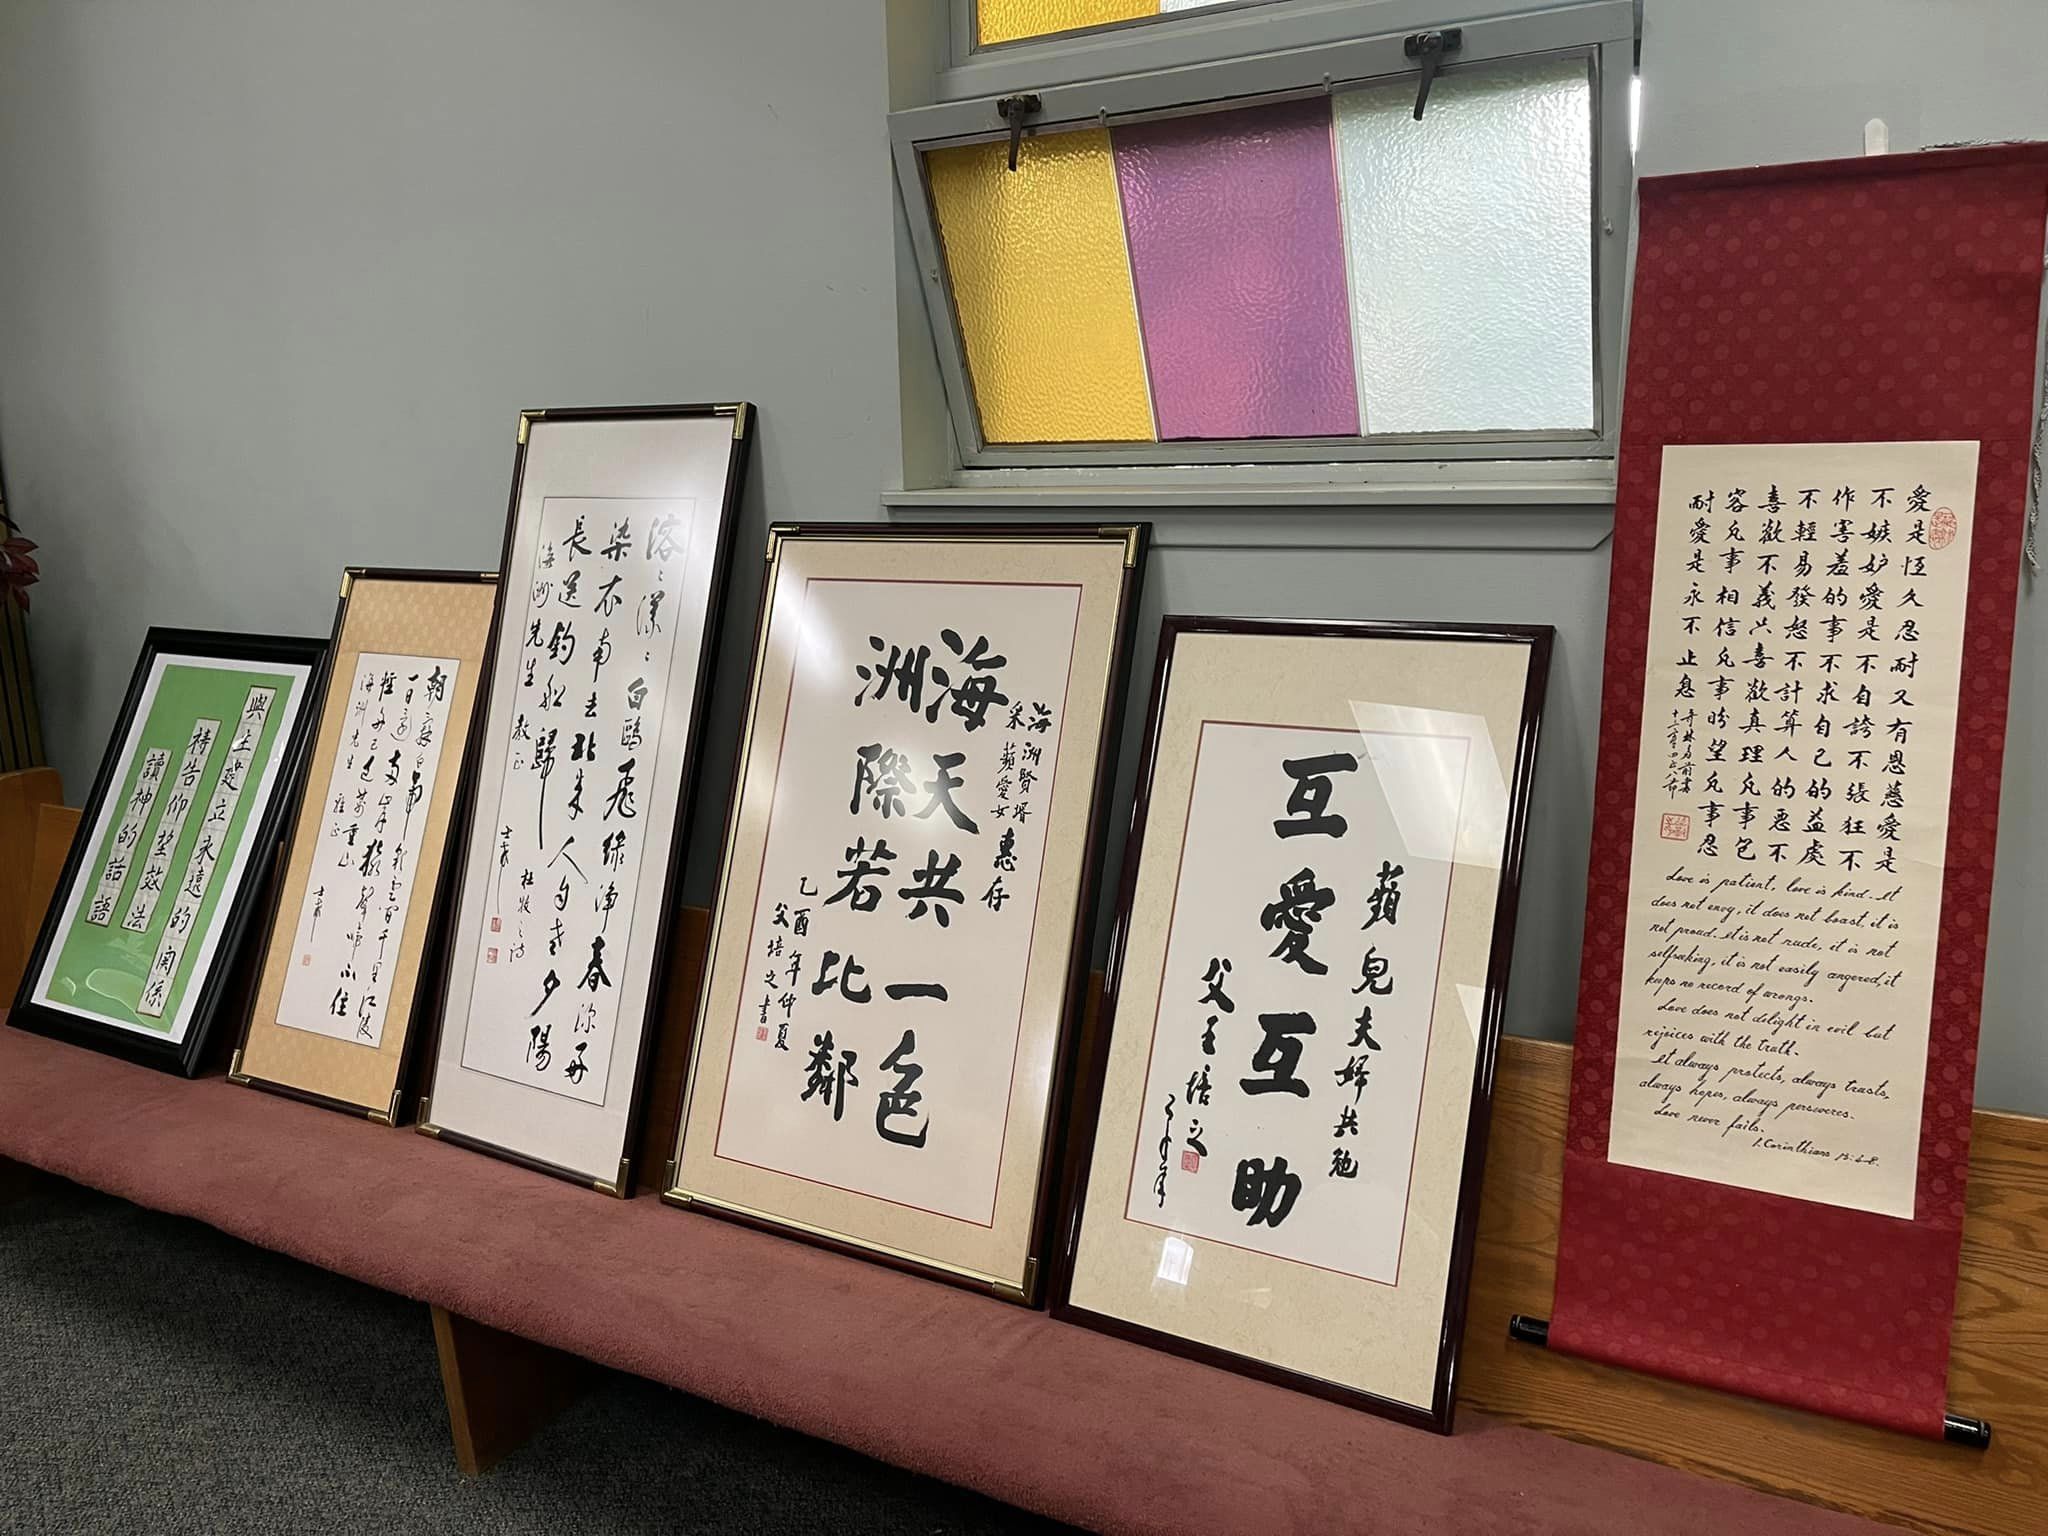 與主建立永遠的関係
祷告仰望效法
讀神的話語
朝辞白帝彩雲間千里江陵
一日還两岸猿聲啼不住
輕舟已过萬重山
海洲先生 雅正
溶〻漾〻白鷗飛綠净春深好
染衣南去北来人自老夕陽
長送釣船歸 杜牧之詩
海洲先生 教正
海洲賢壻
采蘋愛女 惠存
海天共一色
洲際若比鄰
乙酉年仲夏
父培之書
蘋兒夫婦共勉
互愛互助
父王培之
愛是恆久忍耐又有恩慈愛是
不嫉妒愛是不自誇不張狂不
作害羞的事不求自己的益處
不輕易發怒不計算人的惡不
喜歡不義只喜歡真理凡事包
容凡事相信凡事盼望凡事忍
耐愛是永不止息
Love is patient, love is kind. It
does not envy, it does not boast, it is
not proud. It is not rude, it is not
selfseeking, it is not easily angered, it
keeps no record of wrongs.
Love does not delight in evil but
rejoices with the truth.
It always protects, always trusts,
always hopes, always perseveres.
Love never fails.
1. Corinthians 13:4-8.